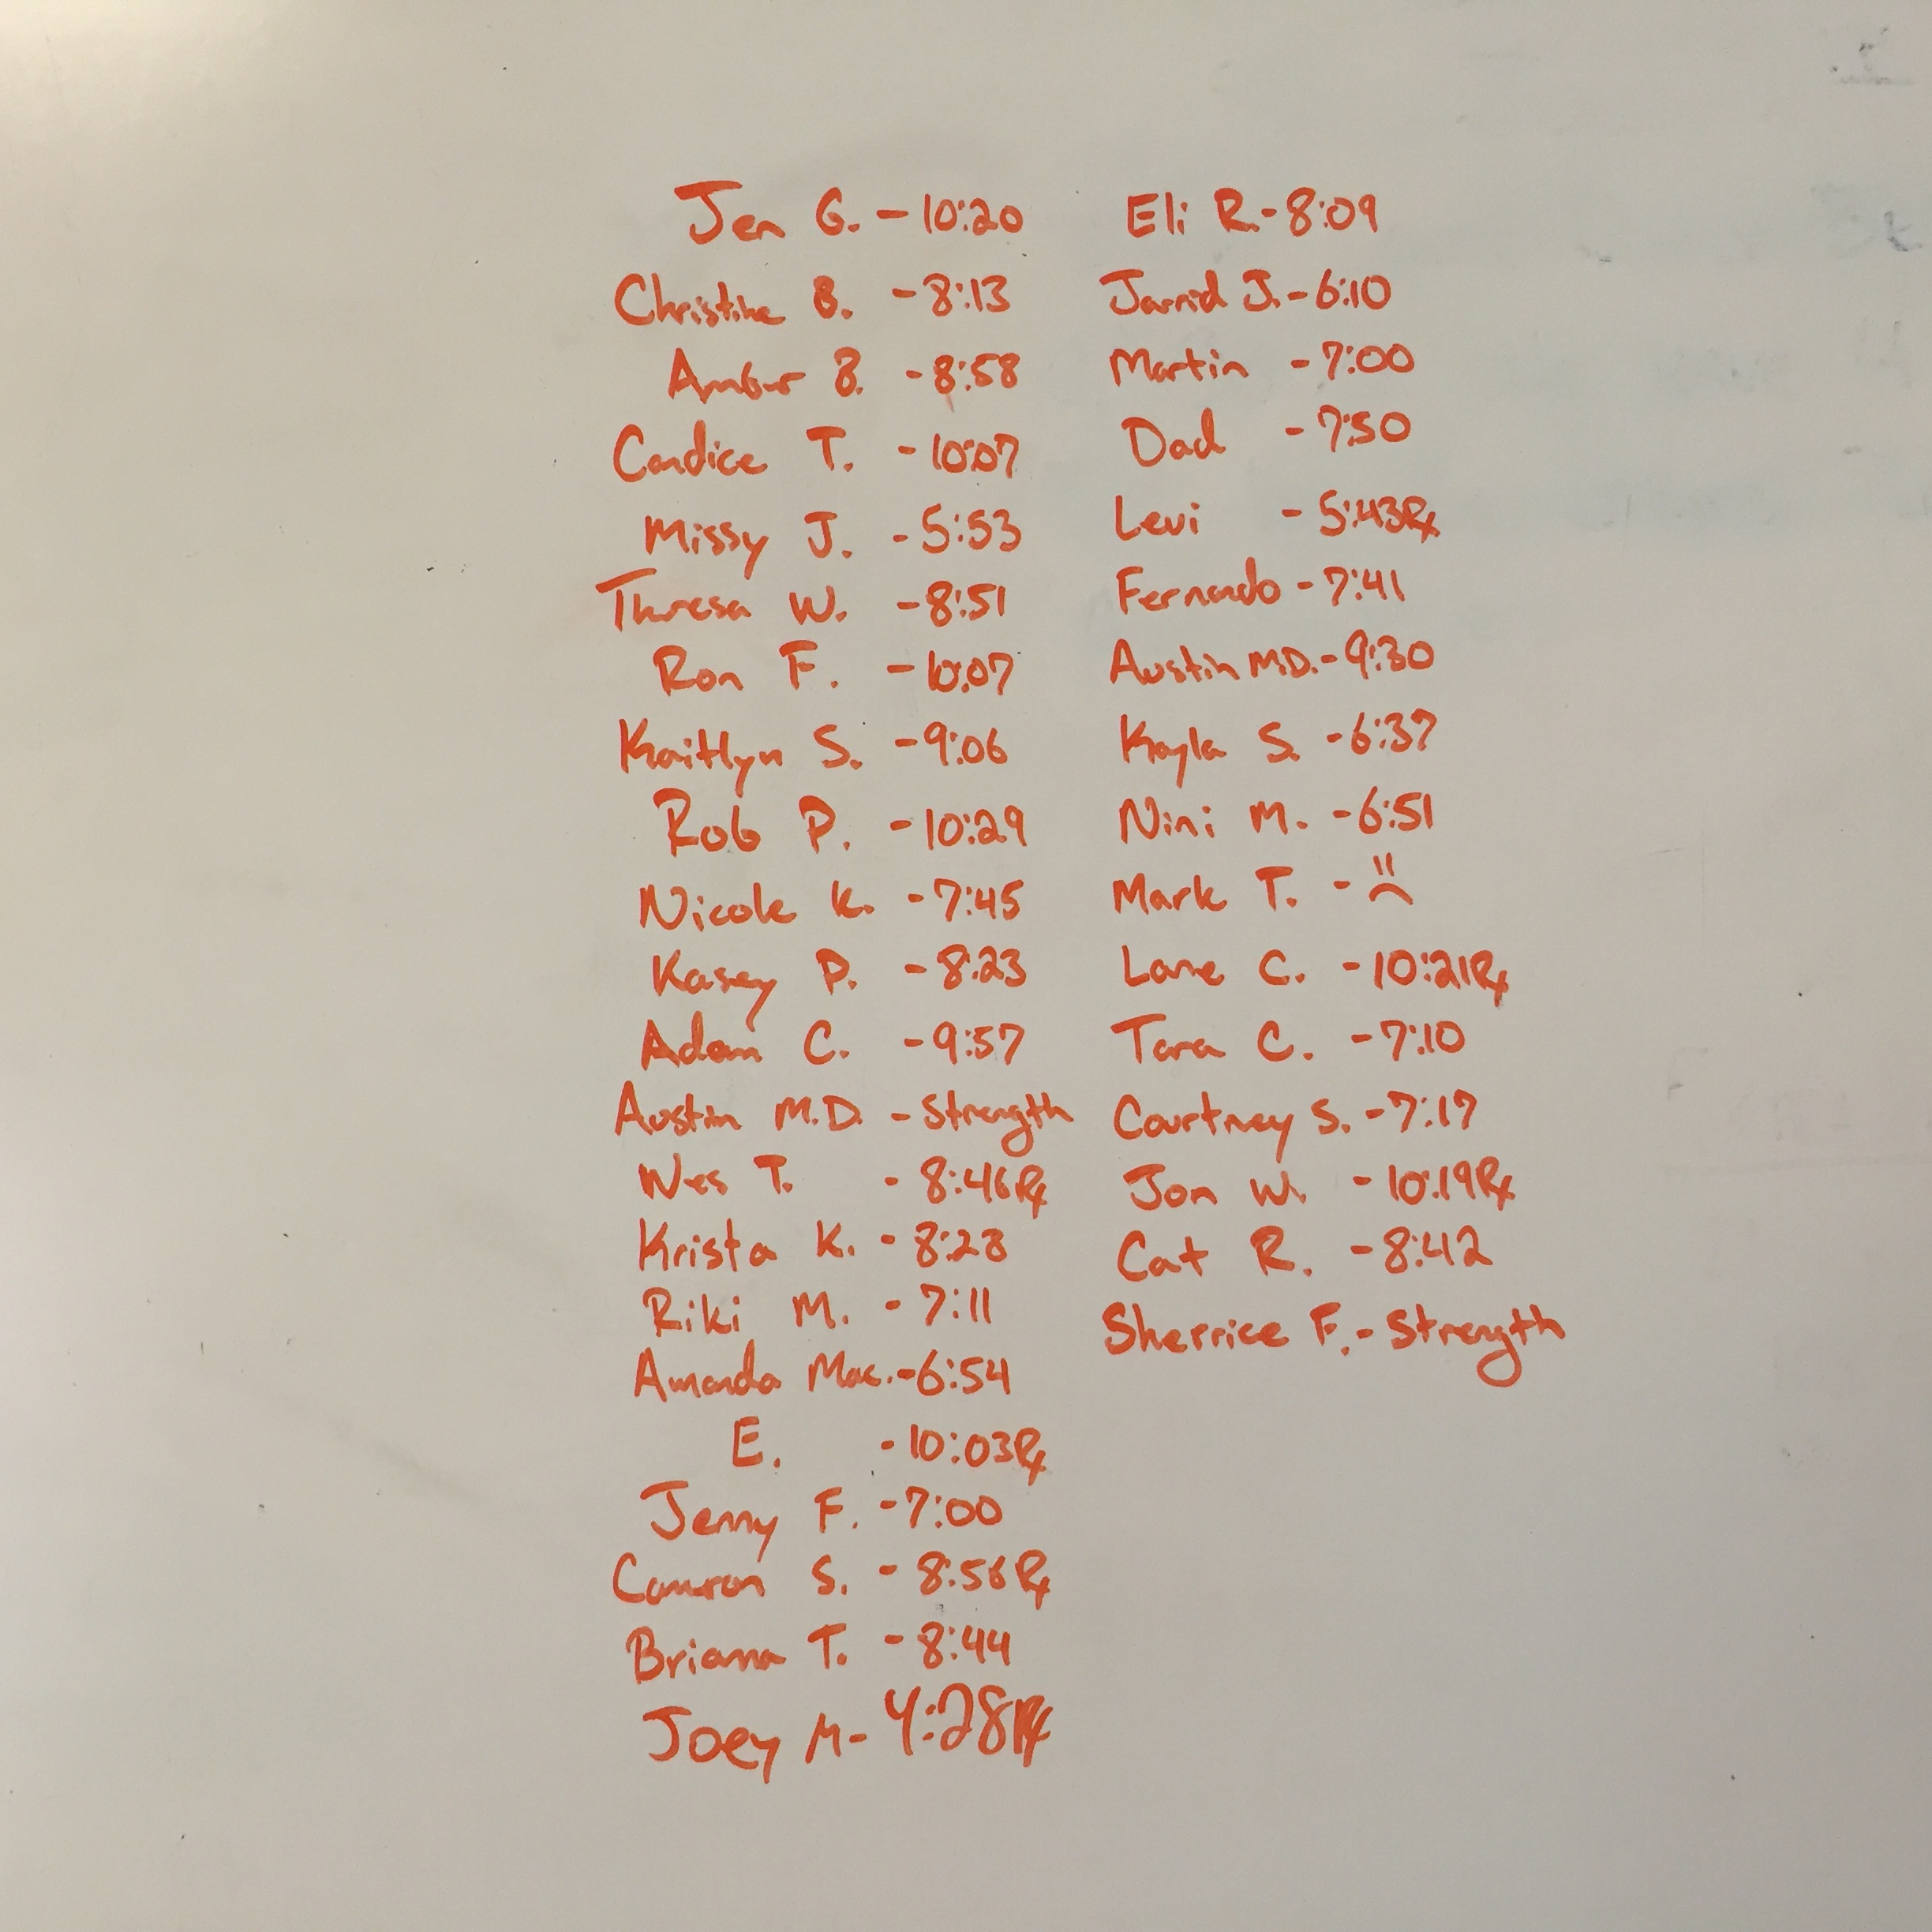 Jen G. - 10:20
Christine B. - 8:13
Amber B. - 8:58
Candice T. - 10:07
Missy J. - 5:53
Theresa W. - 8:51
Ron F. - 10:07
Kaitlyn S. - 9:06
Rob P. - 10:29
Nicole K. - 7:45
Kasey P. - 8:23
Adam C. - 9:57
Austin M.D. - Strength
Wes T. - 8:46 Rx
Krista K. - 8:28
Riki M. - 7:11
Amanda Mac. - 6:54
E. - 10:03 Rx
Jenny F. - 7:00
Camron S. - 8:56 Rx
Briana T. - 8:44
Joey M - 4:28 Rx
Eli R. - 8:09
Jarrid J. - 6:10
Martin - 7:00
Dad - 7:50
Levi - 5:43 Rx
Fernando - 7:41
Austin M.D. - 9:30
Kayla S. - 6:37
Nini M. - 6:51
Mark T. -
Lane C. - 10:21 Rx
Tara C. - 7:10
Courtney S. - 7:17
Jon W. - 10:19 Rx
Cat R. - 8:42
Sherrice F. - Strength